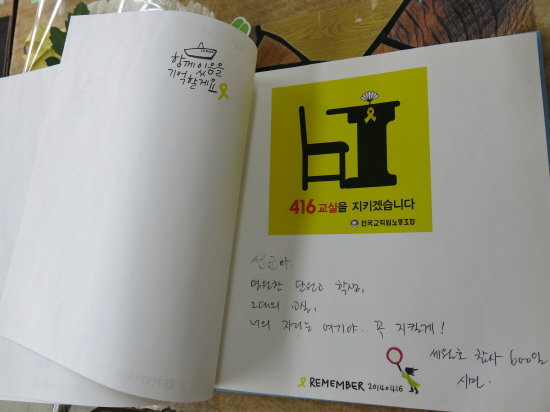 함께 있음을
기억할게요
416 교실을 지키겠습니다
전국교직원노동조합
선균아,
영원한 단원고 학생,
그대의 교실,
너의 자리는 여기야. 꼭 지킬게!
세월호 참사 600일
시민.
REMEMBER 20140416